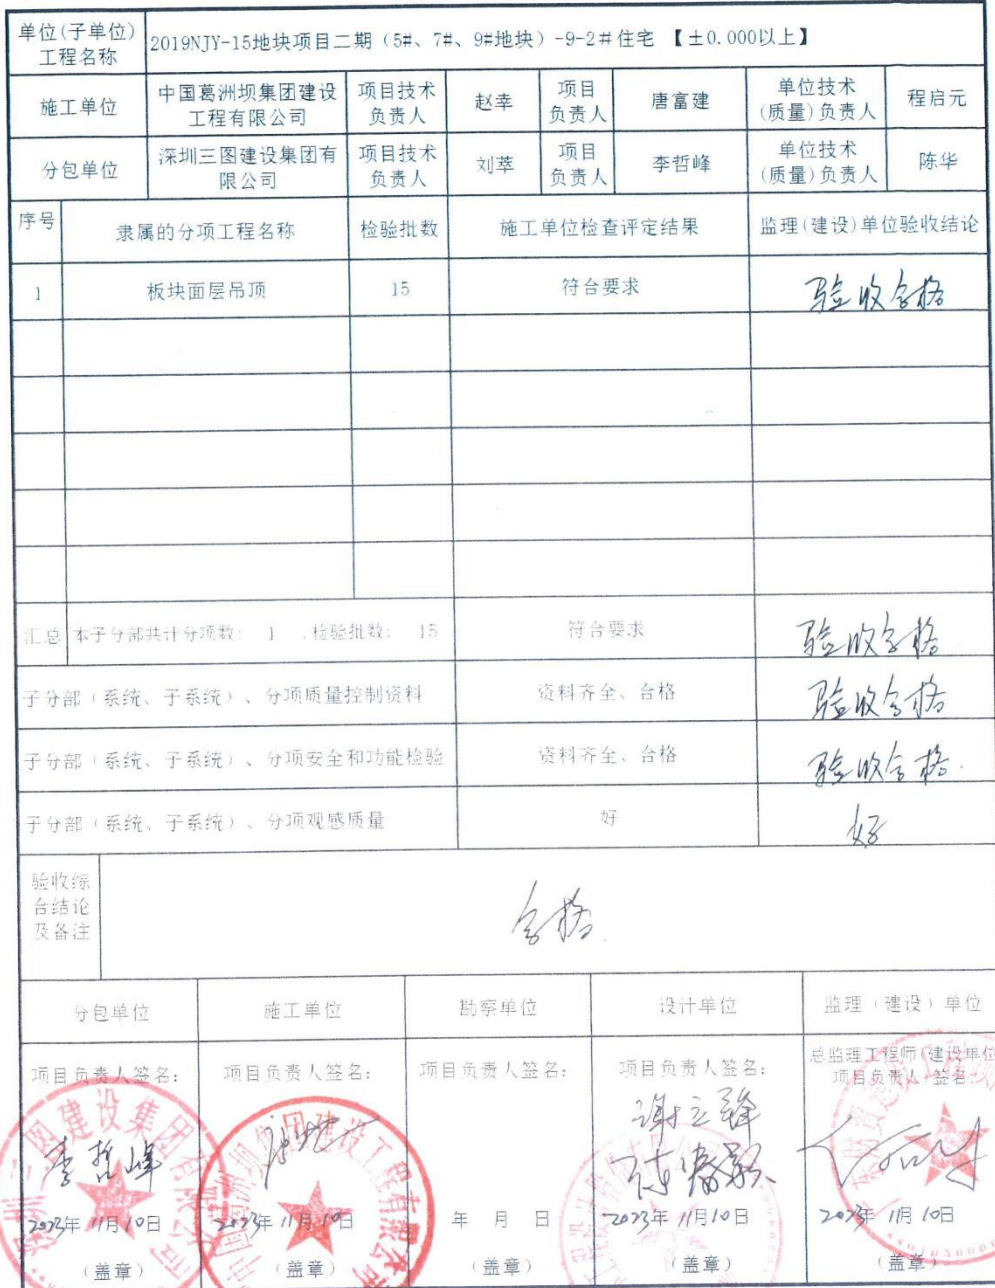 单位(子单位)
工程名称
2019NJY-15地块项目二期（5#、7#、9#地块）-9-2#住宅 【±0.000以上】
施工单位
中国葛洲坝集团建设
工程有限公司
项目技术
负责人
赵幸
项目
负责人
唐富建
单位技术
(质量)负责人
程启元
分包单位
深圳三图建设集团有
限公司
项目技术
负责人
刘萃
项目
负责人
李哲峰
单位技术
(质量)负责人
陈华
序号
隶属的分项工程名称
检验批数
施工单位检查评定结果
监理(建设)单位验收结论
1
板块面层吊顶
15
符合要求
验收合格
汇总
本子分部共计分项数: 1 ,检验批数: 15
符合要求
验收合格
子分部（系统、子系统）、分项质量控制资料
资料齐全、合格
验收合格
子分部（系统、子系统）、分项安全和功能检验
资料齐全、合格
验收合格
子分部（系统、子系统）、分项观感质量
好
好
验收综
合结论
及备注
合格
分包单位
施工单位
勘察单位
设计单位
监理（建设）单位
项目负责人签名:
李哲峰
2023年 11月 10日
（盖章）
项目负责人签名:
2023年 11月 10日
（盖章）
项目负责人签名:
年 月 日
（盖章）
项目负责人签名:
2023年 11月 10日
（盖章）
总监理工程师(建设单位
项目负责人)签名:
2023年 11月 10日
（盖章）